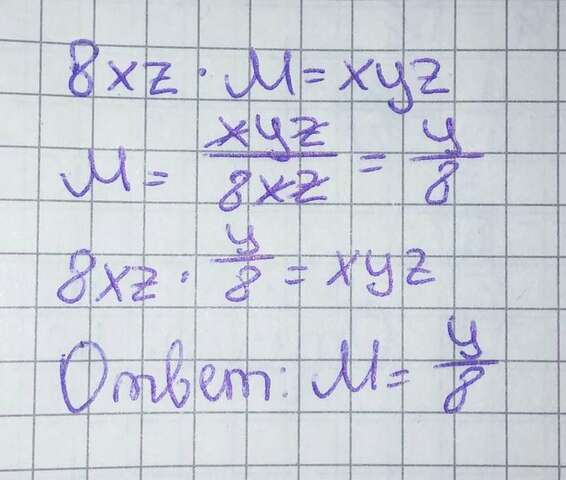 8xz · M = xyz
M = xyz/8xz = y/8
8xz · y/8 = xyz
Ответ: M = y/8